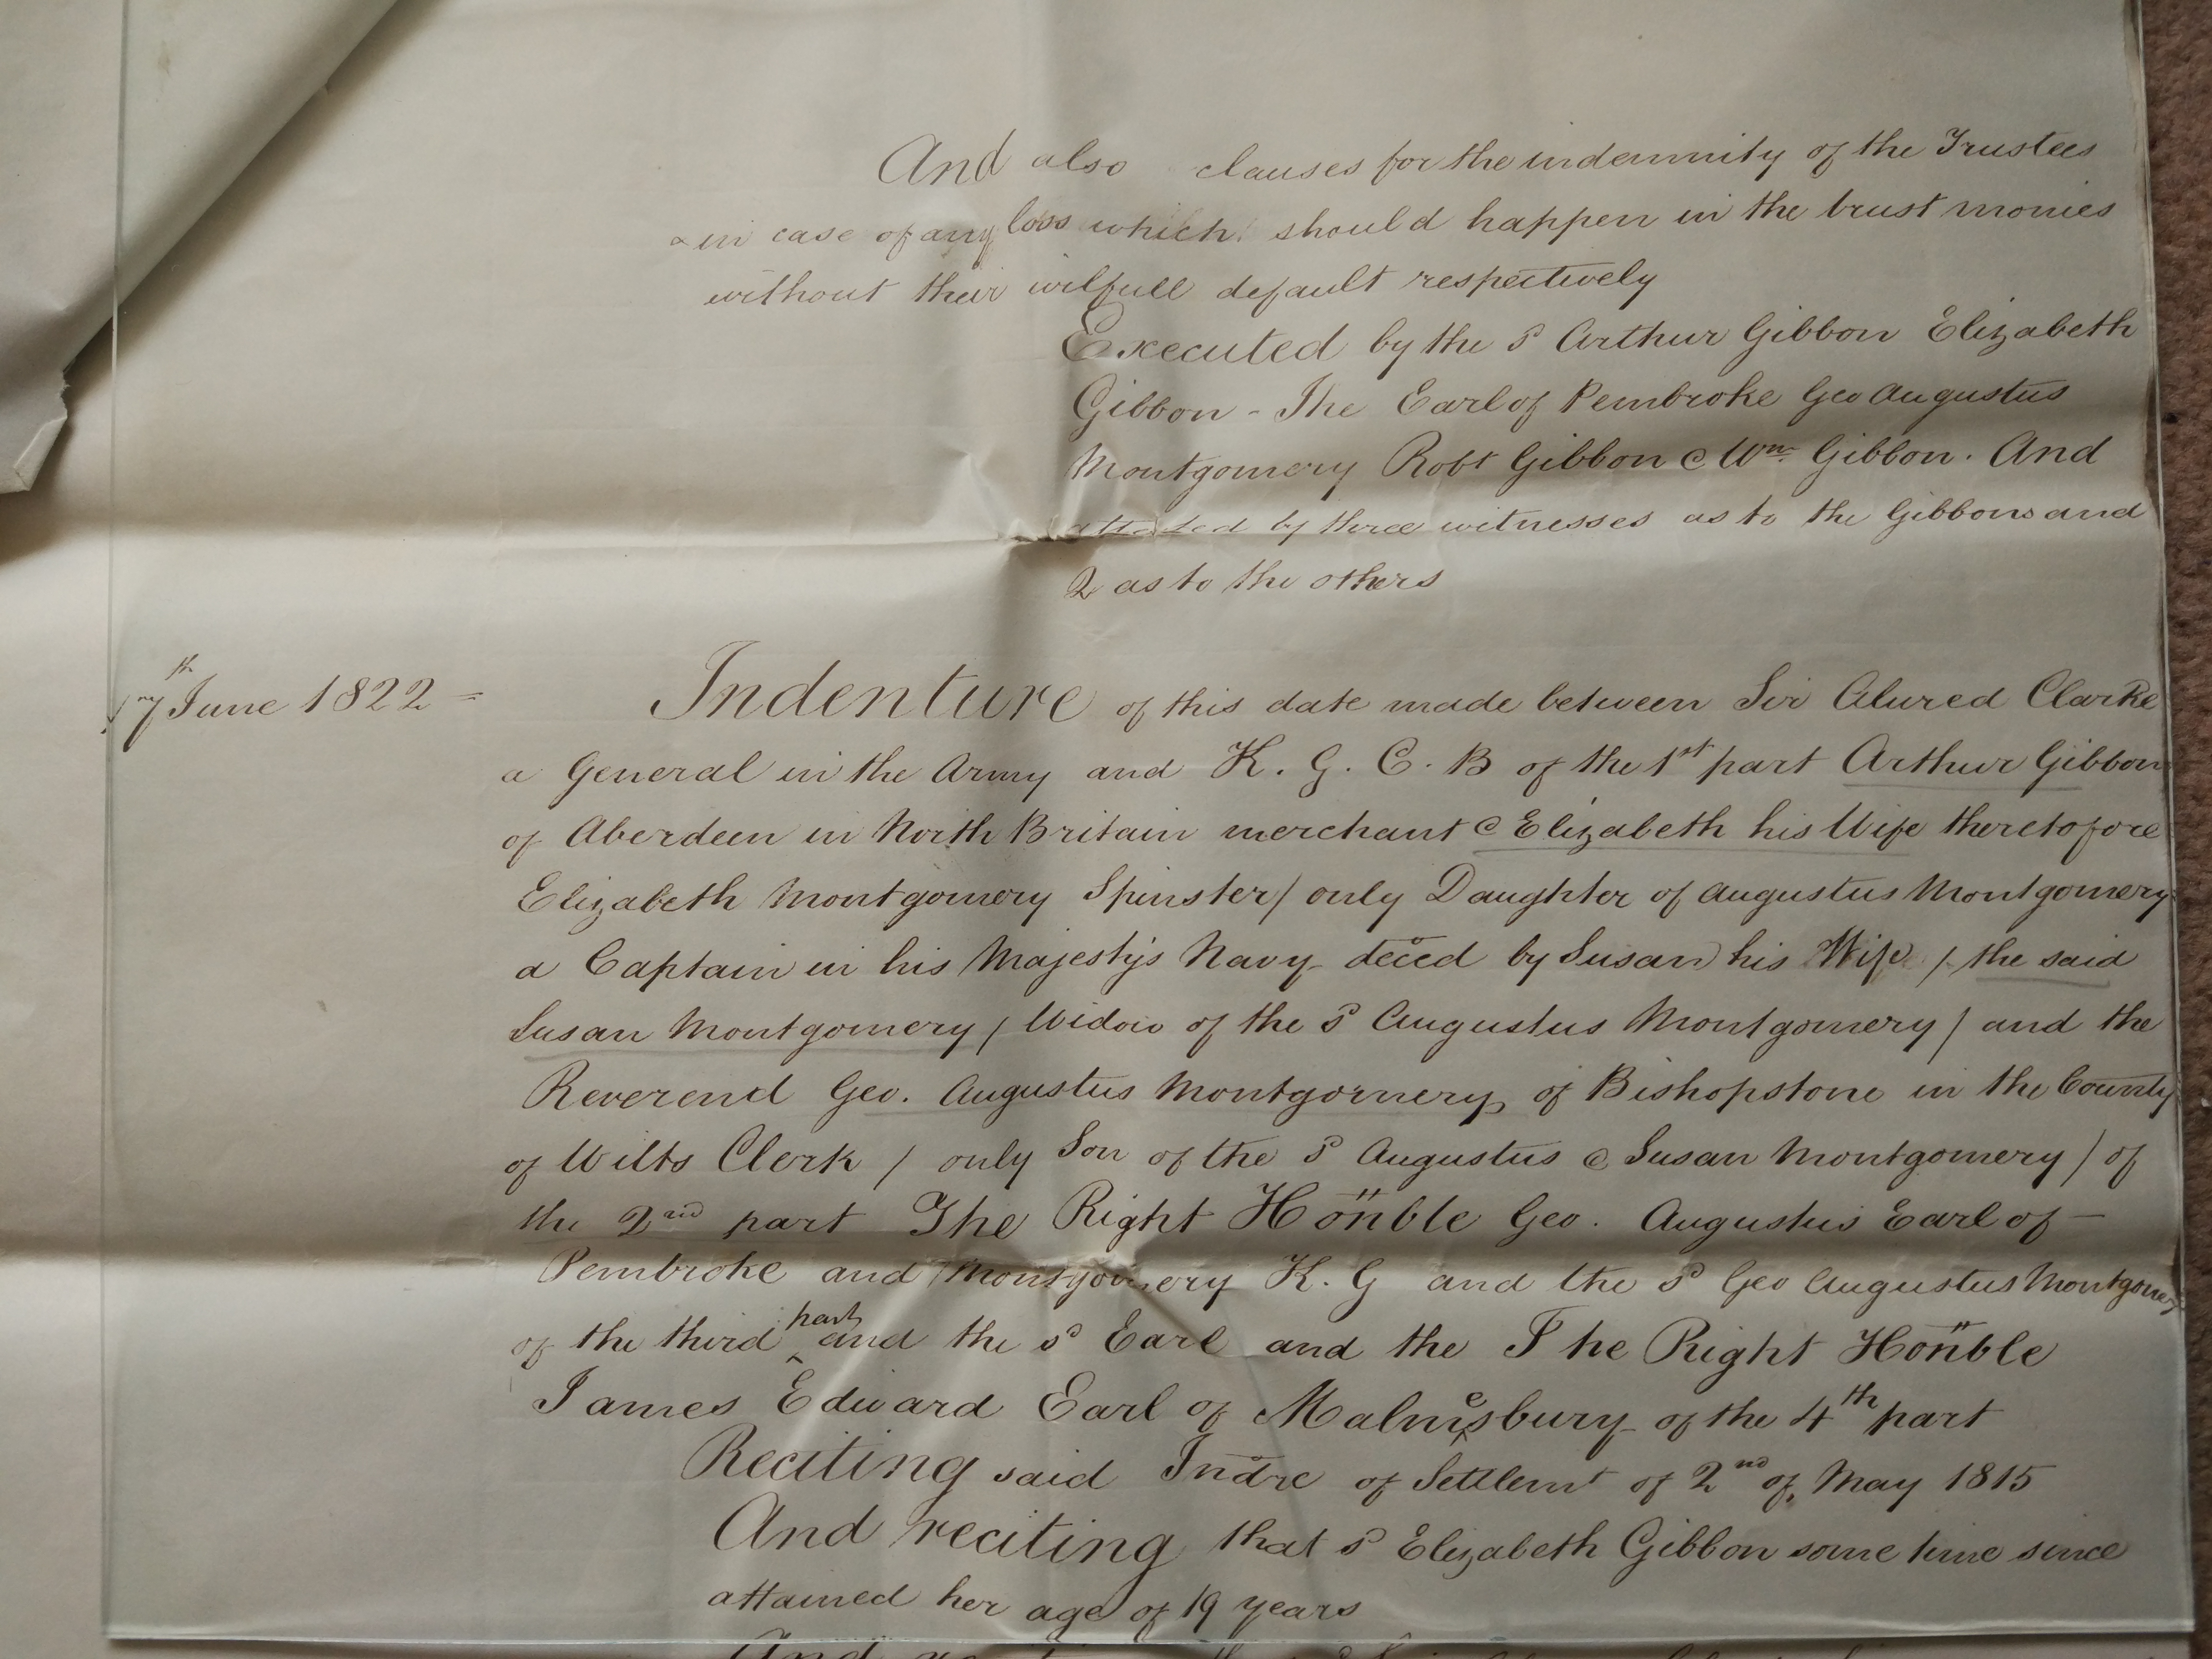 And also clauses for the indemnity of the Trustees
in case of any loss which should happen in the trust monies
without their wilfull default respectively
Executed by the sd Arthur Gibbon Elizabeth
Gibbon - The Earl of Pembroke Geo Augustus
Montgomery Robt Gibbon & Wm Gibbon. And
attested by three witnesses as to the Gibbons and
2 as to the others
7th June 1822 =
Indenture of this date made between Sir Alured Clarke
a General in the Army and K. G. C. B of the 1st part Arthur Gibbon
of Aberdeen in North Britain merchant & Elizabeth his Wife theretofore
Elizabeth Montgomery Spinster / only Daughter of Augustus Montgomery
a Captain in his Majestys Navy deced by Susan his Wife / the said
Susan Montgomery / Widow of the sd Augustus Montgomery / and the
Reverend Geo. Augustus Montgomery of Bishopstone in the County
of Wilts Clerk / only Son of the sd Augustus & Susan Montgomery / of
the 2nd part The Right Honble Geo. Augustus Earl of -
Pembroke and Montgomery K. G and the sd Geo Augustus Montgomery
of the third part and the sd Earl and the The Right Honble
James Edward Earl of Malmesbury of the 4th part
Reciting said Indre of Settlemt of 2nd of May 1815
And reciting that sd Elizabeth Gibbon some time since
attained her age of 19 years